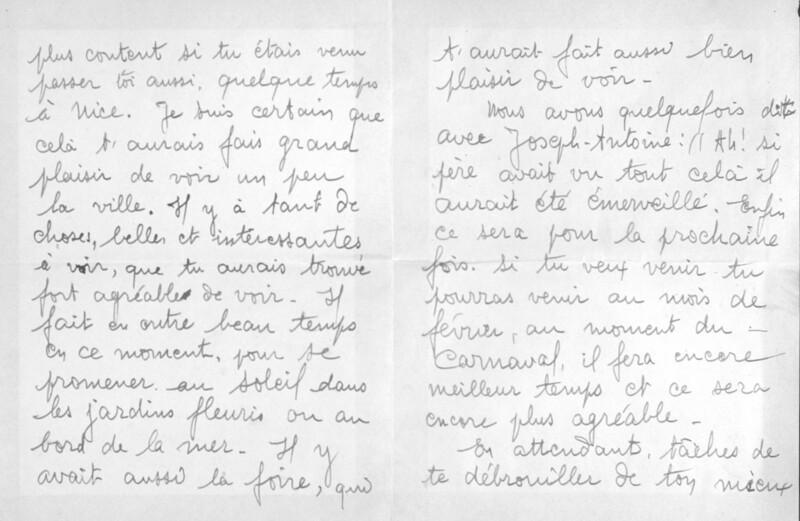 plus content si tu étais venu
passer toi aussi, quelque temps
à Nice. Je suis certain que
celà t'aurais fais grand
plaisir de voir un peu
la ville. Il y à tant de
choses, belles et interessantes
à voir, que tu aurais trouvé
fort agréable de voir - Il
fait en outre beau temps
en ce moment, pour se
promener au soleil dans
les jardins fleuris ou au
bord de la mer - Il y
avait aussi la foire, qui
t'aurait fait aussi bien
plaisir de voir -
Nous avons quelquefois dit
avec Joseph-Antoine: "Ah! si
père avait vu tout celà il
aurait été émerveillé. Enfin
ce sera pour la prochaine
fois. Si tu veux venir tu
pourras venir au mois de
février, au moment du -
Carnaval, il fera encore
meilleur temps et ce sera
encore plus agréable -
En attendant, tâches de
te débrouiller de ton mieux